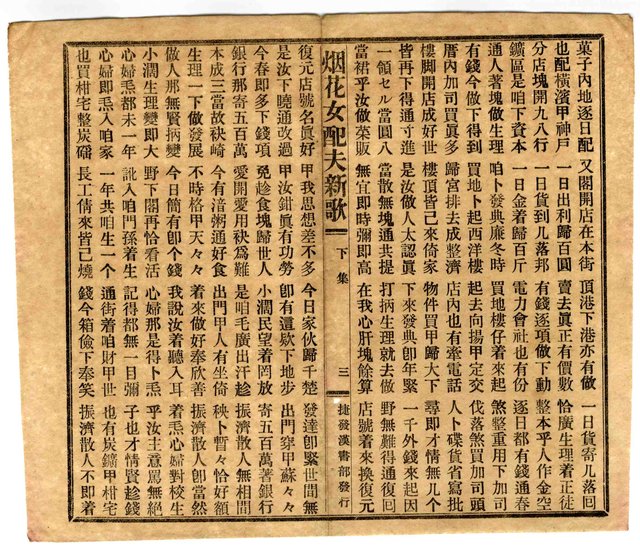 菓子內地逐日配 又閣開店在本街 頂港下港亦有做 一日貨寄几落回
也配橫濱甲神戶 一日出利歸百圓 賣去眞正有價數 恰廣生理着正徒
分店塊開九八行 一日貨到几落邦 有錢逐項做下動 整本乎人作金空
鑛區是咱下資本 一日金着歸百斤 電力會社也有份 逐日都有錢通春
通人著塊做生理 咱卜發典廉冬時 買地樓仔着來起 煞整重用下加司
有錢今做下得到 買地卜起西洋樓 起去向揚甲定交 伐落煞買加司頭
厝內加司買眞多 歸宮排去成整濟 店內也有牽電話 人卜碟貨省寫批
樓脚開店成好世 樓頂皆己來倚家 物件買甲歸大下 尋即才情無几个
皆再下得通寸進 是汝做人太認眞 下來發典卽年緊 一千外錢來起因
一領セル當圓八 當散無塊通共提 打柄生理就去做 野無難得通復回
當裙乎汝做菜販 無宜即時彌即高 在我心肝塊餘算 店號着來換復元
烟花女配夫新歌 下集 三 捷發漢書部發行
復元店號名眞好 甲我思想差不多 今日家伙歸千楚 發達卽緊世間無
是汝下曉通改過 甲汝鉗眞有功勞 卽有這欵下地步 出門穿甲蘇々々
今春即多下錢項 免趁食塊歸世人 小濶民望着罔放 寄五百萬著銀行
銀行那寄五百萬 愛開愛用袂為難 是咱毛廣出汗趁 振濟散人無相間
本成三當故袂崎 今有涪粥通好食 出門甲人有坐倚 秧卜暫々恰好額
生理一下做發展 不時格甲天々々 着來做好奉欣善 振濟散人卽當然
做人那無賢抦變 今日簡有卽个錢 我說汝着聽入耳 着炁心婦對校生
小濶生理變卽大 野下閣再恰看活 心婦那是得卜炁 乎汝主意罵無絕
心婦毛都未一年 訛入咱門孫着生 記得都無一日彌 子也才情賢趁錢
心婦即炁入咱家 一年共咱生一个 通街着咱財甲世 也有炭鑛甲柑宅
也買柑宅整炭礌 長工倩來皆己燒 錢今箱儉下奉笑 振濟散人不即着